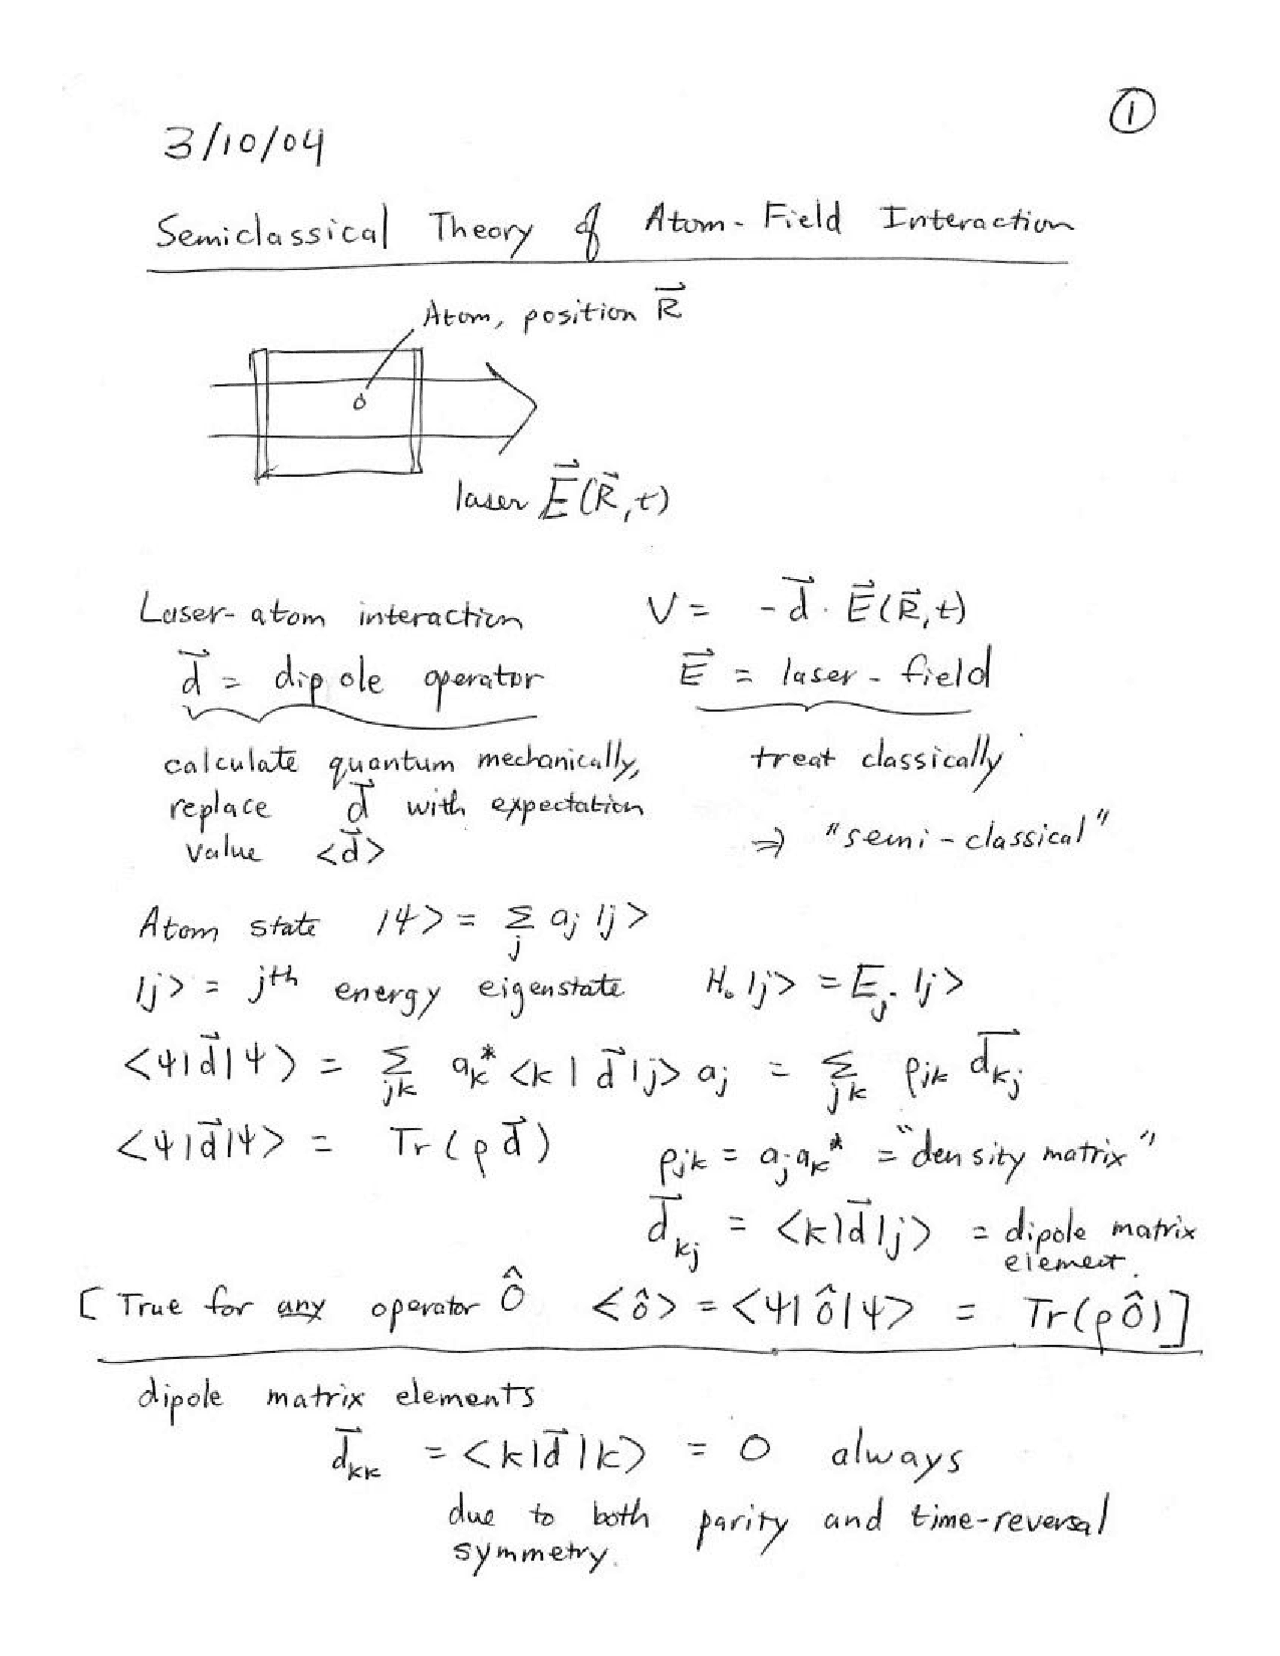 ①
3/10/04
Semiclassical Theory of Atom-Field Interaction
Atom, position R⃗
laser E⃗(R⃗,t)
Laser-atom interaction V = -d⃗ · E⃗(R⃗,t)
d⃗ = dipole operator E⃗ = laser-field
calculate quantum mechanically, treat classically
replace d⃗ with expectation
value <d⃗> ⇒ "semi-classical"
Atom state |ψ> = Σ_j a_j |j>
|j> = j^th energy eigenstate H₀|j> = E_j |j>
<ψ|d⃗|ψ> = Σ_jk a_k^* <k|d⃗|j> a_j = Σ_jk ρ_jk d⃗_kj
<ψ|d⃗|ψ> = Tr(ρd⃗) ρ_jk = a_j a_k^* = "density matrix"
d⃗_kj = <k|d⃗|j> = dipole matrix
element.
[True for any operator Ô <ô> = <ψ|ô|ψ> = Tr(ρô)]
dipole matrix elements
d⃗_kk = <k|d⃗|k> = 0 always
due to both parity and time-reversal
symmetry.